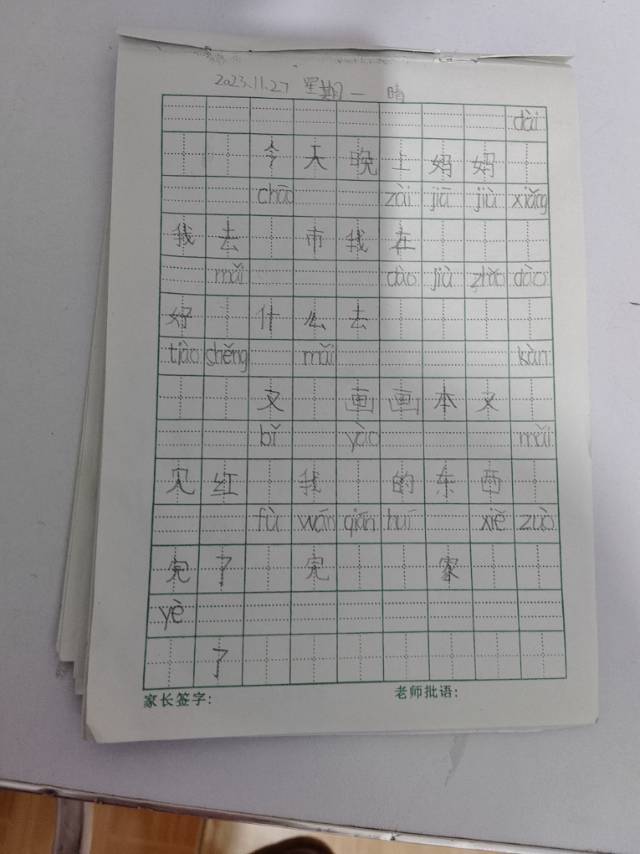 2023.11.27 星期一 晴
dài
今天晚上妈妈
chāo zài jiā jiù xiǎng
我去市我在
mǎi dào jiù zhǎo dào
好什么去
tiào shěng mǎi kàn
又画画本又
bǐ yào mǎi
见红我的东西
fù wán qián huí xiě zuò
完了完家
yè
了
家长签字: 老师批语: